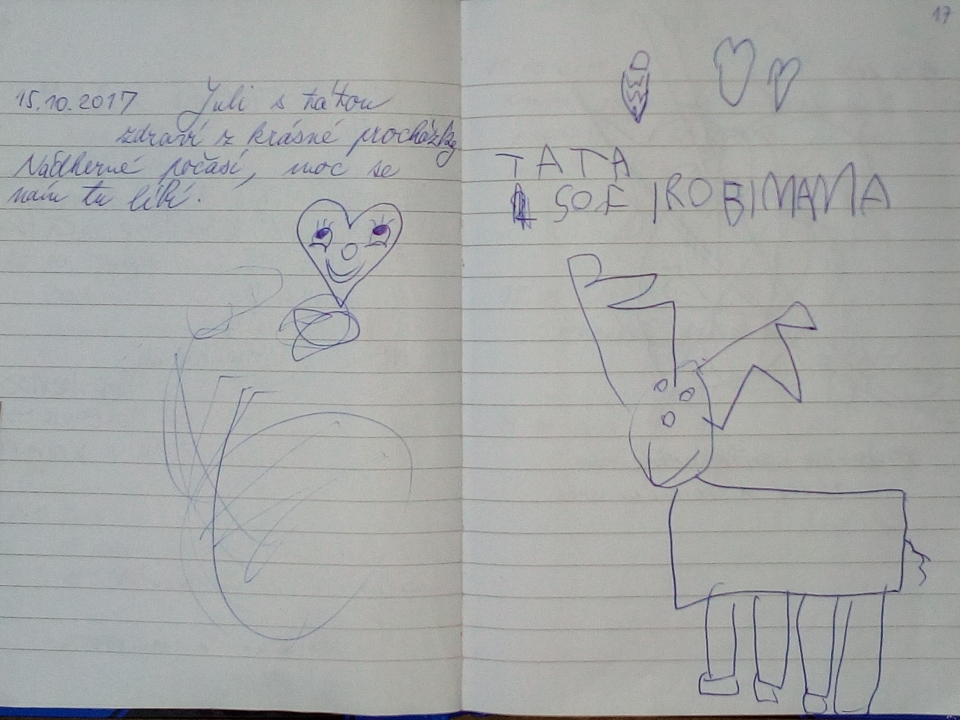 15.10.2017 Juli s taťkou
zdraví z krásné procházky
Nádherné počasí, moc se
nám tu líbí.
17
TATA
SOFIROBIMAMA